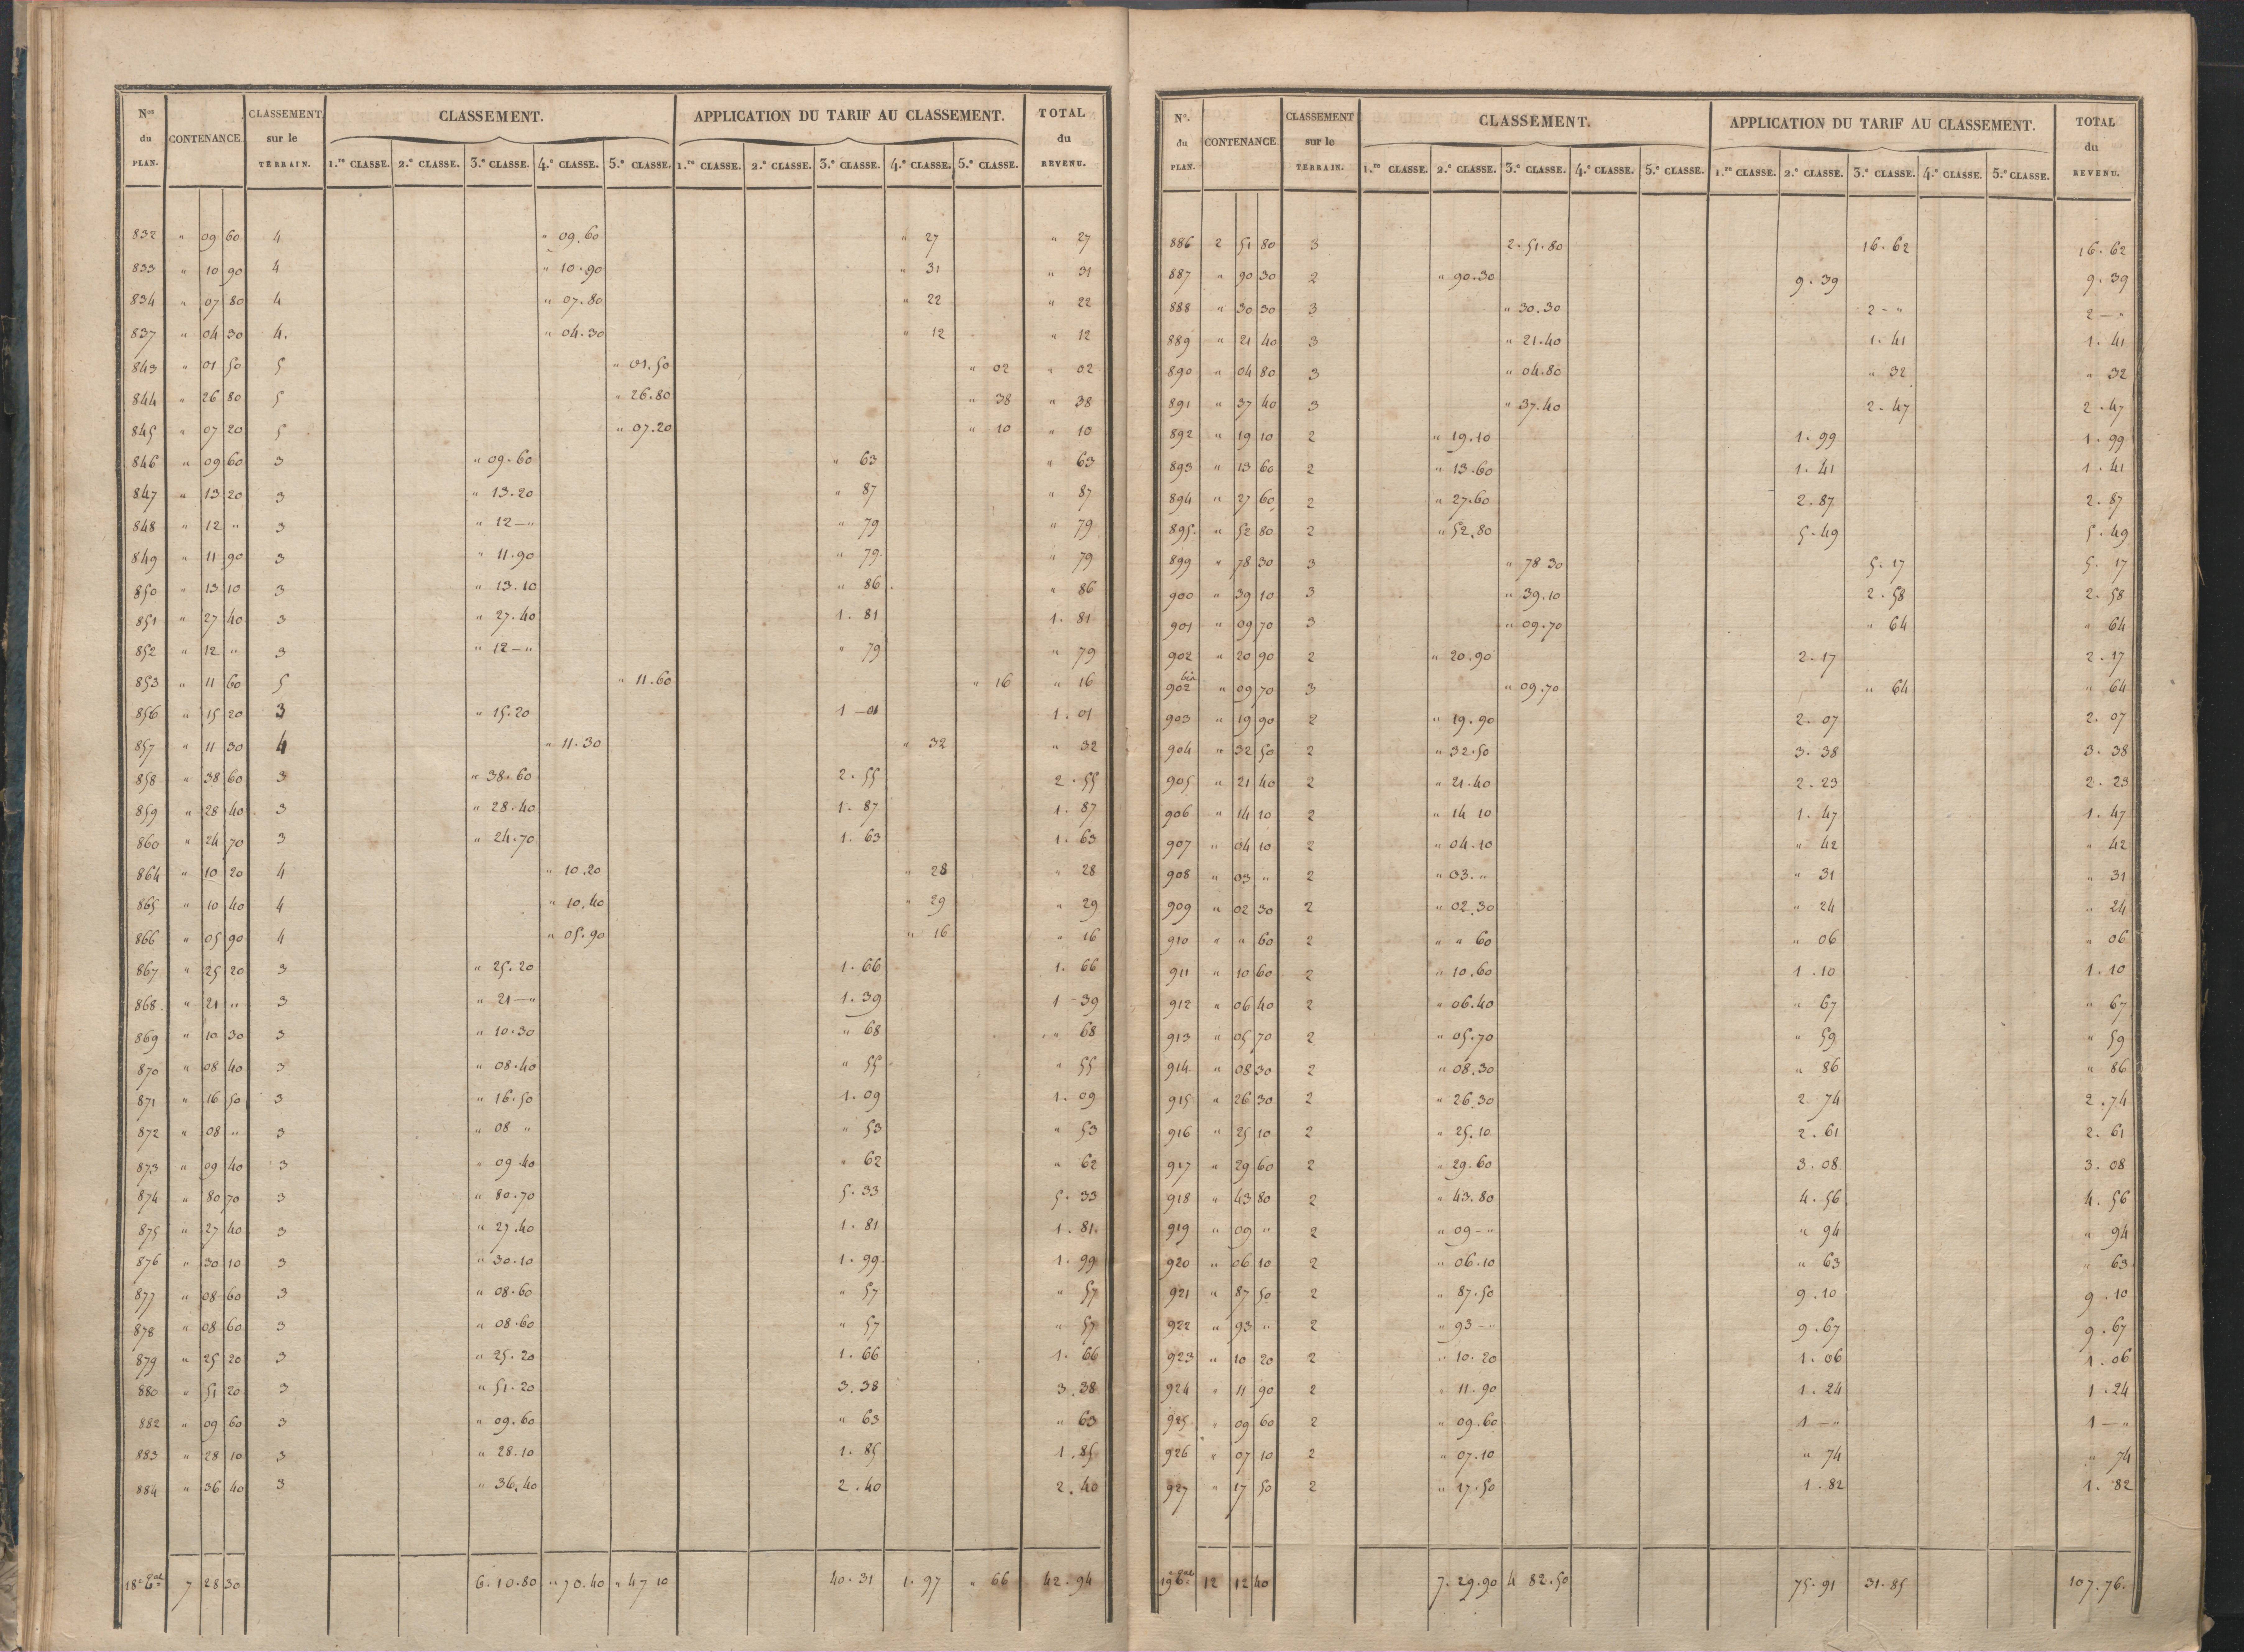 Nos du PLAN. CONTENANCE CLASSEMENT sur le TERRAIN. CLASSEMENT. APPLICATION DU TARIF AU CLASSEMENT. TOTAL du REVENU.
1.re CLASSE. 2.e CLASSE. 3.e CLASSE. 4.e CLASSE. 5.e CLASSE. 1.re CLASSE. 2.e CLASSE. 3.e CLASSE. 4.e CLASSE. 5.e CLASSE.
832 " 09 60 4 " 09.60 " 27 " 27
833 " 10 90 4 " 10.90 " 31 " 31
834 " 07 80 4 " 07.80 " 22 " 22
837 " 04 30 4. " 04.30 " 12 " 12
843 " 01 50 5 " 01.50 " 02 " 02
844 " 26 80 5 " 26.80 " 38 " 38
845 " 07 20 5 " 07.20 " 10 " 10
846 " 09 60 3 " 09.60 " 63 " 63
847 " 13 20 3 " 13.20 " 87 " 87
848 " 12 " 3 " 12—" " 79 " 79
849 " 11 90 3 " 11.90 " 79. " 79
850 " 13 10 3 " 13.10 " 86. " 86
851 " 27 40 3 " 27.40 1. 81 1. 81
852 " 12 " 3 " 12—" " 79 " 79
853 " 11 60 5 " 11.60 " 16 " 16
856 " 15 20 3 " 15.20 1—01 1. 01
857 " 11 30 4 " 11.30 " 32 " 32
858 " 38 60 3 " 38.60 2. 55 2. 55
859 " 28 40 3 " 28.40 1. 87 1. 87
860 " 24 70 3 " 24.70 1. 63 1. 63
864 " 10 20 4 " 10.20 " 28 " 28
865 " 10 40 4 " 10.40 " 29 " 29
866 " 05 90 4 " 05.90 " 16 " 16
867 " 25 20 3 " 25.20 1. 66 1. 66
868 " 21 " 3 " 21—" 1. 39 1-39
869 " 10 30 3 " 10.30 " 68 " 68
870 " 08 40 3 " 08.40 " 55 " 55
871 " 16 50 3 " 16.50 1. 09 1. 09
872 " 08 " 3 " 08 " " 53 " 53
873 " 09 40 3 " 09.40 " 62 " 62
874 " 80 70 3 " 80.70 5. 33 5. 33
875 " 27 40 3 " 27.40 1. 81 1. 81.
876 " 30 10 3 " 30.10 1. 99. 1. 99
877 " 08 60 3 " 08.60 " 57 " 57
878 " 08 60 3 " 08.60 " 57 " 57
879 " 25 20 3 " 25.20 1. 66 1. 66
880 " 51 20 3 " 51.20 3.38 3.38
882 " 09 60 3 " 09.60 " 63 " 63
883 " 28 10 3 " 28.10 1. 85 1.85
884 " 36 40 3 " 36.40 2.40 2.40
18e Tal 7 28 30 6.10.80 " 70.40 " 47 10 40.31 1.97 " 66 42.94
No. du PLAN. CONTENANCE. CLASSEMENT sur le TERRAIN. CLASSEMENT. APPLICATION DU TARIF AU CLASSEMENT. TOTAL du REVENU.
1.re CLASSE. 2.e CLASSE. 3.e CLASSE. 4.e CLASSE. 5.e CLASSE. 1.re CLASSE. 2.e CLASSE. 3.e CLASSE. 4.e CLASSE. 5.e CLASSE.
886 2 51 80 3 2.51.80 16.62 16.62
887 " 90 30 2 " 90.30 9.39 9.39
888 " 30 30 3 " 30.30 2-" 2—"
889 " 21 40 3 " 21.40 1. 41 1. 41
890 " 04 80 3 " 04.80 " 32 " 32
891 " 37 40 3 " 37.40 2. 47 2.47
892 " 19 10 2 " 19.10 1. 99 1. 99
893 " 13 60 2 " 13.60 1. 41 1. 41
894 " 27 60 2 " 27.60 2.87 2.87
895. " 52 80 2 " 52.80 5.49 5.49
899 " 78 30 3 " 78 30 5. 17 5. 17
900 " 39 10 3 " 39.10 2.58 2.58
901 " 09 70 3 " 09.70 " 64 " 64
902 " 20 90 2 " 20.90 2.17 2.17
902 bis " 09 70 3 " 09.70 " 64 " 64
903 " 19 90 2 " 19.90 2. 07 2. 07
904 " 32 50 2 " 32.50 3. 38 3. 38
905 " 21 40 2 " 21.40 2. 23 2. 23
906 " 14 10 2 " 14 10 1. 47 1. 47
907 " 04 10 2 " 04.10 " 42 " 42
908 " 03 " 2 " 03." " 31 " 31
909 " 02 30 2 " 02.30 " 24 " 24
910 " " 60 2 " " 60 " 06 " 06
911 " 10 60 2 " 10.60 1.10 1.10
912 " 06 40 2 " 06.40 " 67 " 67
913 " 05 70 2 " 05.70 " 59 " 59
914 " 08 30 2 " 08.30 " 86 " 86
915 " 26 30 2 " 26.30 2 74 2.74
916 " 25 10 2 " 25.10 2.61 2.61
917 " 29 60 2 " 29.60 3.08 3.08
918 " 43 80 2 " 43.80 4.56 4.56
919 " 09 " 2 " 09-" " 94 " 94
920 " 06 10 2 " 06.10 " 63 " 63
921 " 87 50 2 " 87.50 9.10 9.10
922 " 93 " 2 " 93-" 9.67 9.67
923 " 10 20 2 " 10.20 1.06 1.06
924 " 11 90 2 " 11.90 1.24 1.24
925 " 09 60 2 " 09.60 1—" 1—"
926 " 07 10 2 " 07.10 " 74 " 74
927 " 17 50 2 " 17.50 1.82 1.82
19e Tal 12 12 40 7.29.90 4 82.50 75.91 31.85 107.76.